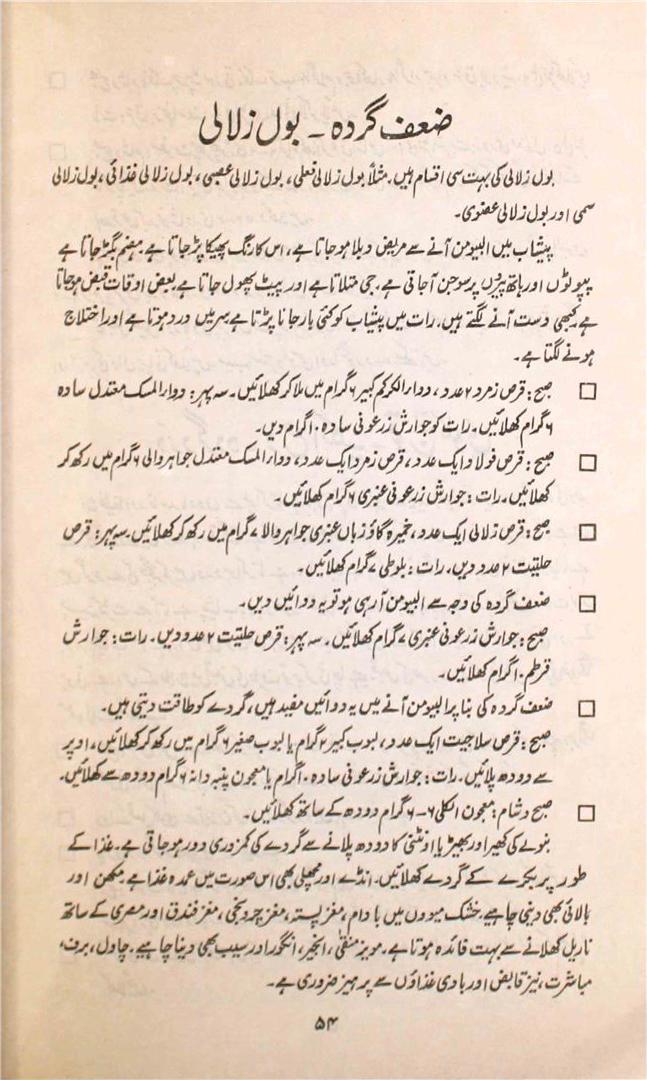 ضعف گردہ ۔ بول زلالی
بول زلالی کی بہت سی اقسام ہیں۔ مثلاً بول زلالی فعلی، بول زلالی عصبی، بول زلالی غذائی، بول زلالی
سمی اور بول زلالی عضوی۔
پیشاب میں البیومن آنے سے مریض دبلا ہو جاتا ہے، اس کا رنگ پھیکا پڑ جاتا ہے، ہضم بگڑ جاتا ہے
پپوٹوں اور ہاتھ پیروں پر سوجن آجاتی ہے، جی متلاتا ہے اور پیٹ پھول جاتا ہے بعض اوقات قبض ہوجاتا
ہے، کبھی دست آنے لگتے ہیں۔ رات میں پیشاب کو کئی بار جانا پڑتا ہے سر میں درد ہوتا ہے اور اختلاج
ہونے لگتا ہے۔
□ صبح: قرص زمرد ۲ عدد، دوار الکرکم کبیر ۶ گرام میں ملا کر کھلائیں۔ سہ پہر: دوار المسک معتدل سادہ
۶ گرام کھلائیں۔ رات کو جوارش زرعونی سادہ ۱۰ گرام دیں۔
□ صبح: قرص فولاد ایک عدد، قرص زمرد ایک عدد، دوار المسک معتدل جواہر والی ۶ گرام میں رکھ کر
کھلائیں۔ رات: جوارش زرعونی عنبری ۶ گرام کھلائیں۔
□ صبح: قرص زلالی ایک عدد، خمیرہ گاؤ زباں عنبری جواہر والا ۷ گرام میں رکھ کر کھلائیں۔ سہ پہر: قرص
حلتیت ۲ عدد دیں۔ رات: بلوطی ۷ گرام کھلائیں۔
□ ضعف گردہ کی وجہ سے البیومن آرہی ہو تو یہ دوائیں دیں۔
صبح: جوارش زرعونی عنبری ۷ گرام کھلائیں۔ سہ پہر: قرص حلتیت ۲ عدد دیں۔ رات: جوارش
قرطم ۱۰ گرام کھلائیں۔
□ ضعف گردہ کی بنا پر البیومن آنے میں یہ دوائیں مفید ہیں، گردے کو طاقت دیتی ہیں۔
صبح: قرص سلاجیت ایک عدد، لبوب کبیر ۶ گرام یا لبوب صغیر ۶ گرام میں رکھ کر کھلائیں، اوپر
سے دودھ پلائیں۔ رات: جوارش زرعونی سادہ ۱۰ گرام یا معجون پنبہ دانہ ۶ گرام دودھ سے کھلائیں۔
□ صبح و شام: معجون الکلی ۶-۶ گرام دودھ کے ساتھ کھلائیں۔
بنولے کی کھیر اور بھیڑ یا اونٹنی کا دودھ پلانے سے گردے کی کمزوری دور ہو جاتی ہے۔ غذا کے
طور پر بکرے کے گردے کھلائیں۔ انڈے اور مچھلی بھی اس صورت میں عمدہ غذا ہے مکھن اور
بالائی بھی دینی چاہیے۔ خشک میووں میں بادام، مغز پستہ، مغز چرونجی، مغز فندق اور مصری کے ساتھ
ناریل کھلانے سے بہت فائدہ ہوتا ہے۔ مویز منقی، انجیر، انگور اور سیب بھی دینا چاہیے۔ چاول، برف،
مباشرت، نیز قابض اور بادی غذاؤں سے پرہیز ضروری ہے۔
۵۴